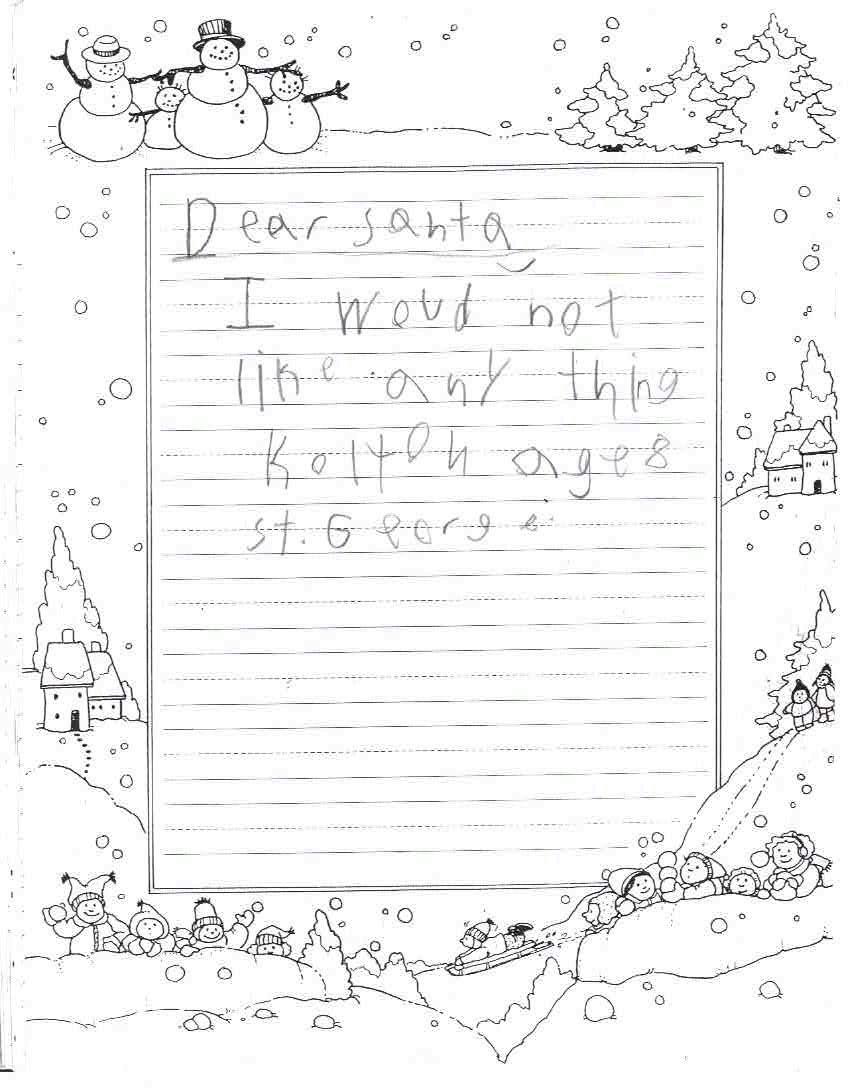 Dear santa
I woud not
like any thing
Kolton age 8
st. George